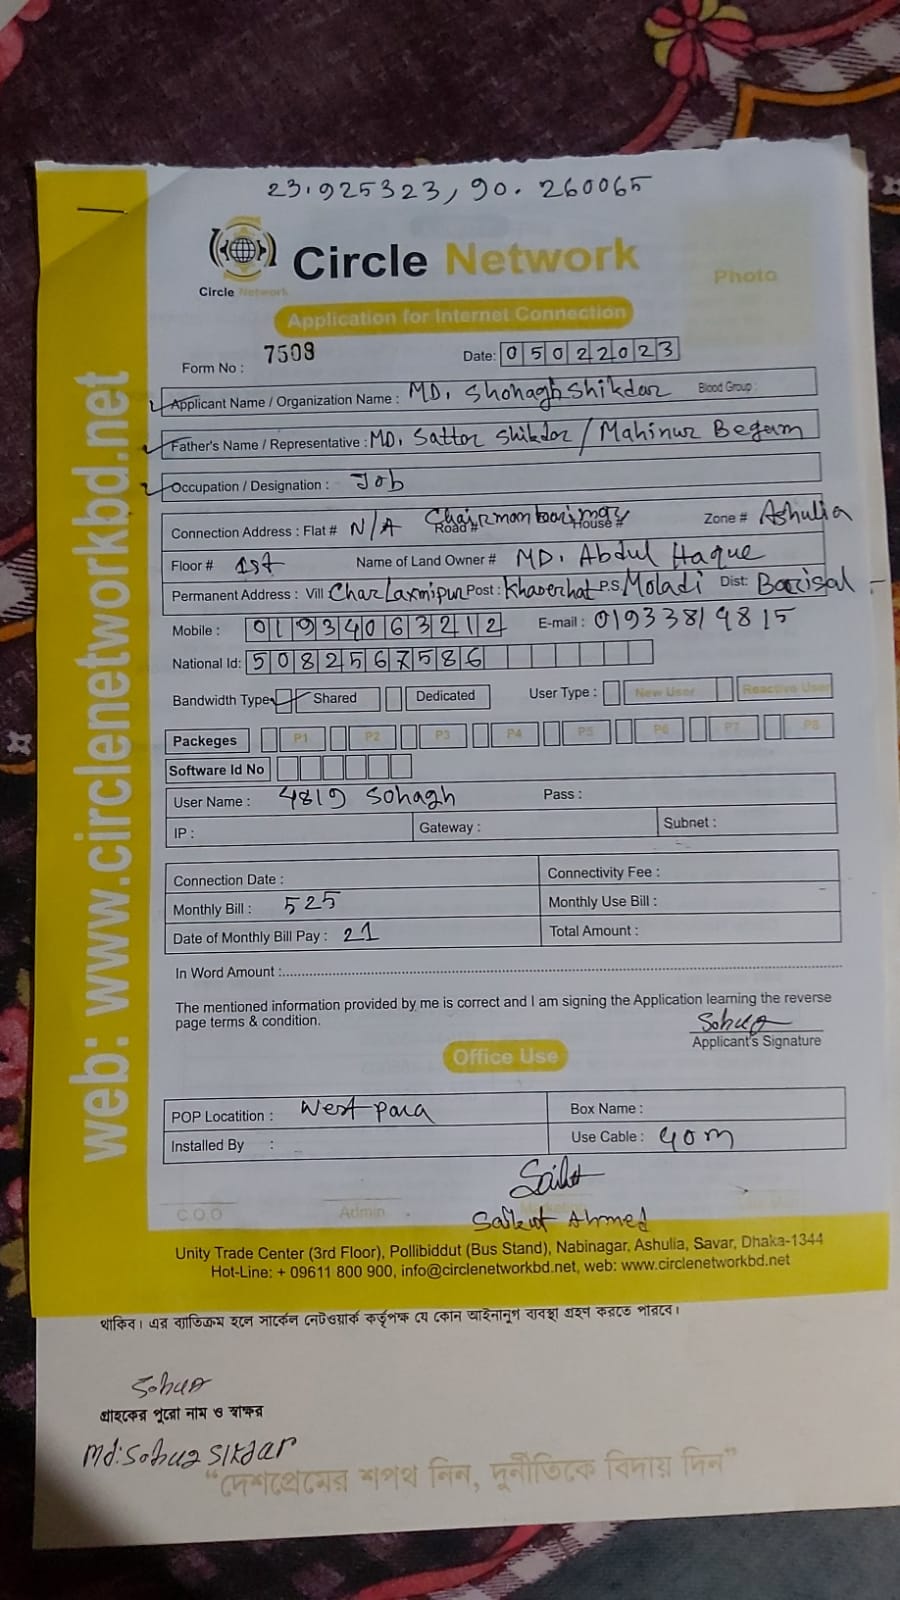 23.925323, 90.260065
Circle Network
Circle Network
Photo
Application for Internet Connection
Form No : 7508 Date: 05022023
Applicant Name / Organization Name : MD. Shohagh Shikdar Blood Group :
Father's Name / Representative : MD. Sattar Shikdar / Mahinur Begam
Occupation / Designation : Job
Connection Address : Flat # N/A Road # House # Zone # Ashulia
Floor # 1st Name of Land Owner # MD. Abdul Haque
Permanent Address : Vill Char Laxmipur Post : Khaserhat P.S Moladi Dist: Barisal
Mobile : 01934063212 E-mail : 01933819815
National Id: 5082567586
Bandwidth Type Shared Dedicated User Type : New User Reactive User
Packeges P1 P2 P3 P4 P5 P6 P7 P8
Software Id No
User Name : 4819 Sohagh Pass :
IP : Gateway : Subnet :
Connection Date : Connectivity Fee :
Monthly Bill : 525 Monthly Use Bill :
Date of Monthly Bill Pay : 21 Total Amount :
In Word Amount :
The mentioned information provided by me is correct and I am signing the Application learning the reverse
page terms & condition.
Sohag
Applicant's Signature
Office Use
POP Locatition : West para Box Name :
Installed By : Use Cable : 40m
C.O.O Admin
Saikat Ahmed
Unity Trade Center (3rd Floor), Pollibiddut (Bus Stand), Nabinagar, Ashulia, Savar, Dhaka-1344
Hot-Line: + 09611 800 900, info@circlenetworkbd.net, web: www.circlenetworkbd.net
web: www.circlenetworkbd.net
থাকিব। এর ব্যতিক্রম হলে সার্কেল নেটওয়ার্ক কর্তৃপক্ষ যে কোন আইনানুগ ব্যবস্থা গ্রহণ করতে পারবে।
Sohag
গ্রাহকের পুরো নাম ও স্বাক্ষর
Md: Sohag Sikdar
“দেশপ্রেমের শপথ নিন, দুর্নীতিকে বিদায় দিন”